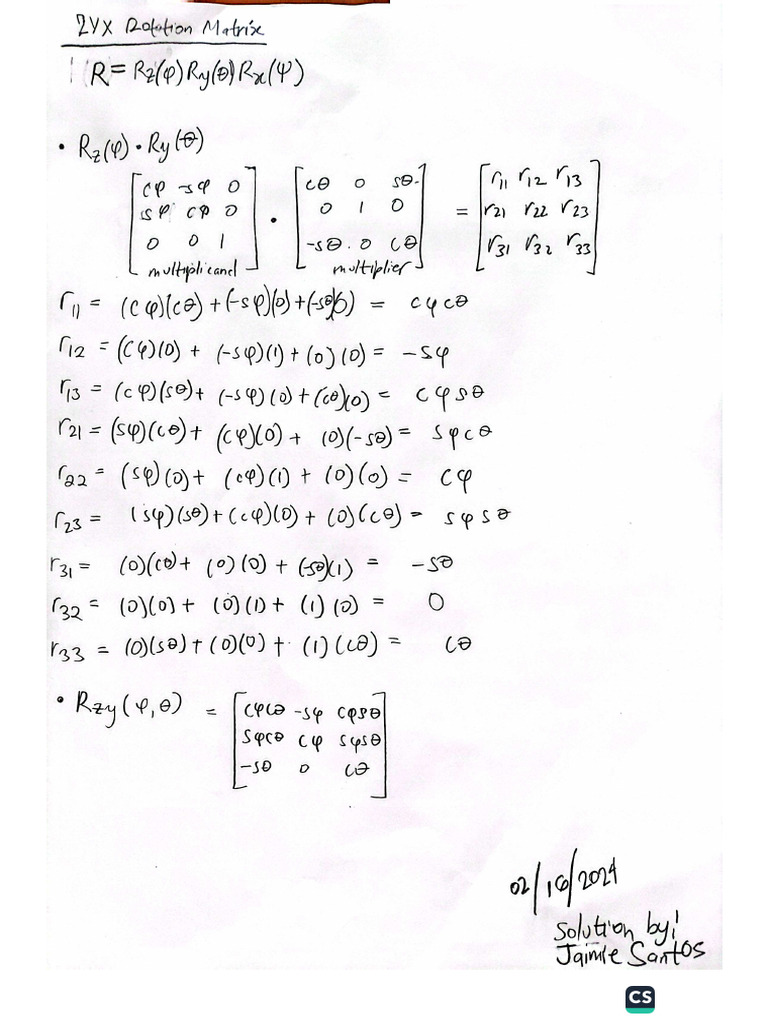 ZYX Rotation Matrix
R = Rz(φ) Ry(θ) Rx(ψ)
• Rz(φ) • Ry(θ)
[cφ -sφ 0] [cθ 0 sθ] [r11 r12 r13]
[sφ cφ 0] • [0 1 0] = [r21 r22 r23]
[0 0 1] [-sθ 0 cθ] [r31 r32 r33]
multiplicand multiplier
r11 = (cφ)(cθ) + (-sφ)(0) + (-sθ)(0) = cφcθ
r12 = (cφ)(0) + (-sφ)(1) + (0)(0) = -sφ
r13 = (cφ)(sθ) + (-sφ)(0) + (cθ)(0) = cφsθ
r21 = (sφ)(cθ) + (cφ)(0) + (0)(-sθ) = sφcθ
r22 = (sφ)(0) + (cφ)(1) + (0)(0) = cφ
r23 = (sφ)(sθ) + (cφ)(0) + (0)(cθ) = sφsθ
r31 = (0)(cθ) + (0)(0) + (-sθ)(1) = -sθ
r32 = (0)(0) + (0)(1) + (1)(0) = 0
r33 = (0)(sθ) + (0)(0) + (1)(cθ) = cθ
• Rzy(φ,θ) = [cφcθ -sφ cφsθ]
[sφcθ cφ sφsθ]
[-sθ 0 cθ]
02/16/2024
Solution by:
Jaimie Santos
CS